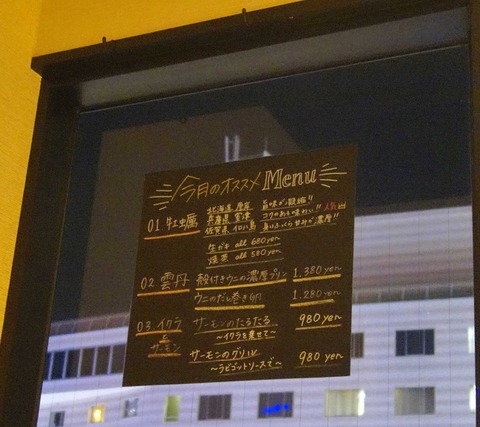 今月のオススメ Menu
01 牡蠣
北海道 厚岸 旨味が凝縮!!
兵庫県 室津 コクのある味わい!! 人気
佐賀県 イロハ島 身はふっくら甘みが濃厚!!
生ガキ all 680yen
焼/蒸 all 580yen
02 雲丹 殻付きウニの濃厚プリン 1.380yen
ウニのだし巻き卵 1.280yen
03 イクラ & サーモン
サーモンのたるたる 980yen
〜イクラを乗せて〜
サーモンのグリル 980yen
〜ラビゴットソースで〜